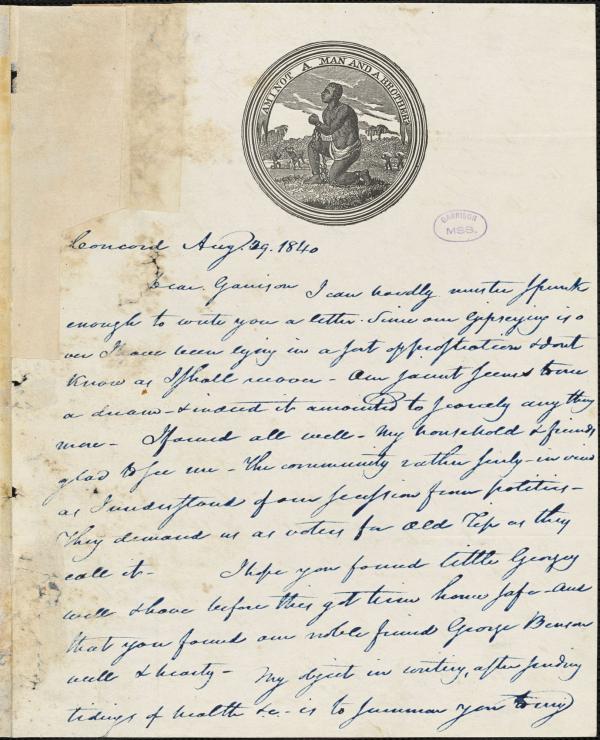 AM I NOT A MAN AND A BROTHER
GARRISON
MSS.
Concord Aug. 29. 1840
Dear Garrison I can hardly muster spunk
enough to write you a letter. Since our Gipseying is o
ver I have been lying in a sort of prostration & dont
know as I shall recover - Our jaunt seems to me
a dream - & indeed it amounted to scarcely any thing
more - I found all well - My household & friends
glad to see me - The community rather surly - in view
as I understand of our secession from politics -
They demand us as voters for Old Tip as they
call it - I hope you found little Georgey
well & have before this got him home safe - and
that you found our noble friend George Benson
well & hearty - My object in writing, after sending
tidings of health &c - is to summon you to my